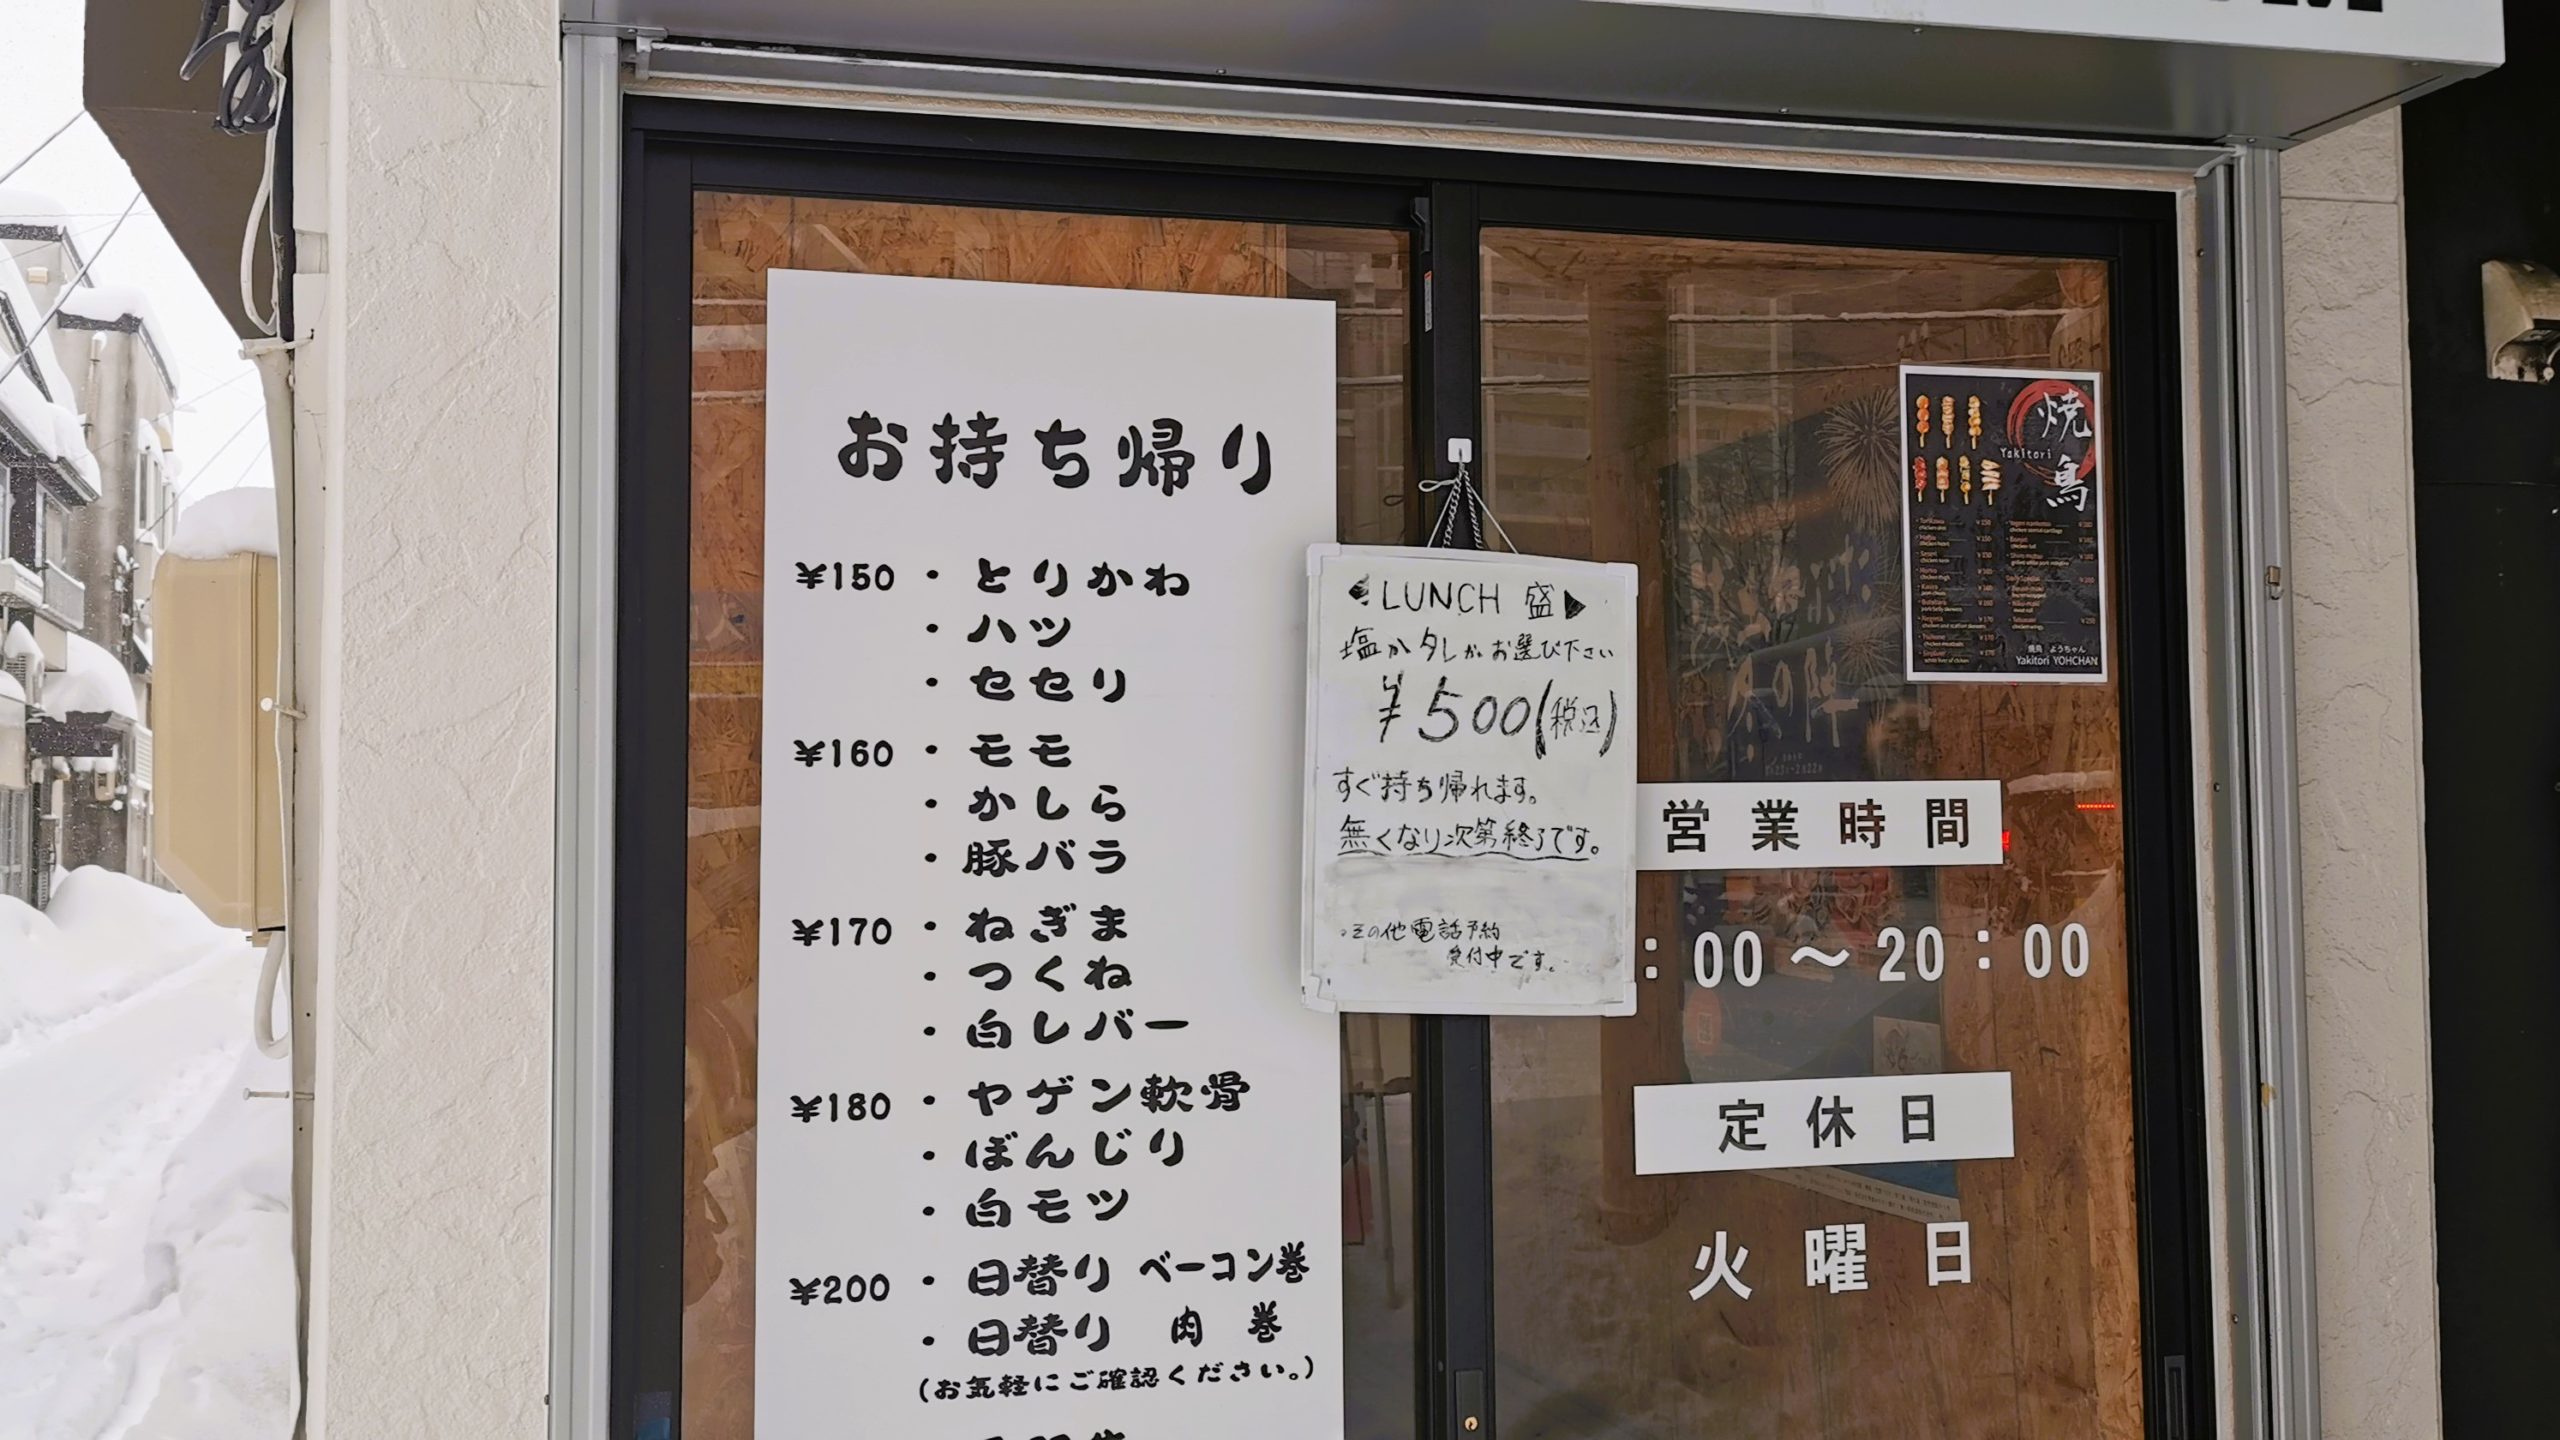 お持ち帰り
¥150・とりかわ
・ハツ
・セセリ
¥160・モモ
・かしら
・豚バラ
¥170・ねぎま
・つくね
・白レバー
¥180・ヤゲン軟骨
・ぼんじり
・白モツ
¥200・日替り ベーコン巻
・日替り 肉 巻
(お気軽にご確認ください。)
LUNCH 盛
塩かタレかお選び下さい
¥500(税込)
すぐ持ち帰れます。
無くなり次第終了です。
・その他電話予約
受付中です。
焼鳥
Yakitori
焼鳥 ようちゃん
Yakitori YOHCHAN
営業時間
:00～20:00
定休日
火曜日
冬の陣